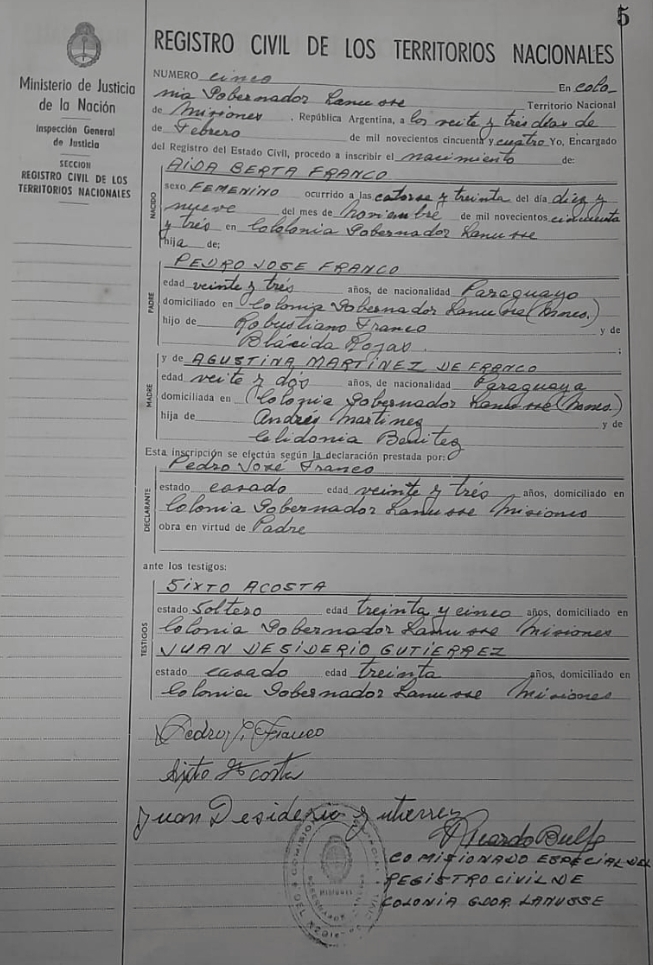 5
Ministerio de Justicia
de la Nación
Inspección General
de Justicia
SECCION
REGISTRO CIVIL DE LOS
TERRITORIOS NACIONALES
REGISTRO CIVIL DE LOS TERRITORIOS NACIONALES
NUMERO cinco En colo-
nia Gobernador Lanusse Territorio Nacional
de Misiones, República Argentina, a los veite y tres dias de
de Febrero de mil novecientos cincuenta y cuatro Yo, Encargado
del Registro del Estado Civil, procedo a inscribir el nacimiento de:
NACIDO
AIDA BERTA FRANCO
sexo FEMENINO ocurrido a las catorse y treinta del día diez y
nueve del mes de Noviembre de mil novecientos cincuenta
y trés en Cololonia Gobernador Lanusse
hija de;
PADRE
PEDRO JOSE FRANCO
edad veinte y trés años, de nacionalidad Paraguayo
domiciliado en Colonia Gobernador Lanusse (Mnes.)
hijo de Robustiano Franco y de
Blácida Rojas ;
MADRE
y de AGUSTINA MARTINEZ DE FRANCO
edad veite y dós años, de nacionalidad Paraguaya
domiciliada en Colonia Gobernador Lanusse (Mnes.)
hija de Andrés Martinez y de
Celidonia Benitez
Esta inscripción se efectúa según la declaración prestada por:
DECLARANTE
Pedro José Franco
estado casado edad veinte y trés años, domiciliado en
Colonia Gobernador Lanusse Misiones
obra en virtud de Padre
ante los testigos:
TESTIGOS
SIXTO ACOSTA
estado Soltero edad treinta y cinco años, domiciliado en
Colonia Gobernador Lanusse Misiones
JUAN DESIDERIO GUTIERREZ
estado casado edad treinta años, domiciliado en
Colonia Gobernador Lanusse Misiones
Pedro J. Franco
Sixto Acosta
Juan Desiderio Gutierrez
Ricardo
COMISIONADO ESPECIAL DEL
REGISTRO CIVIL DE
COLONIA GDOR. LANUSSE
MISIONES